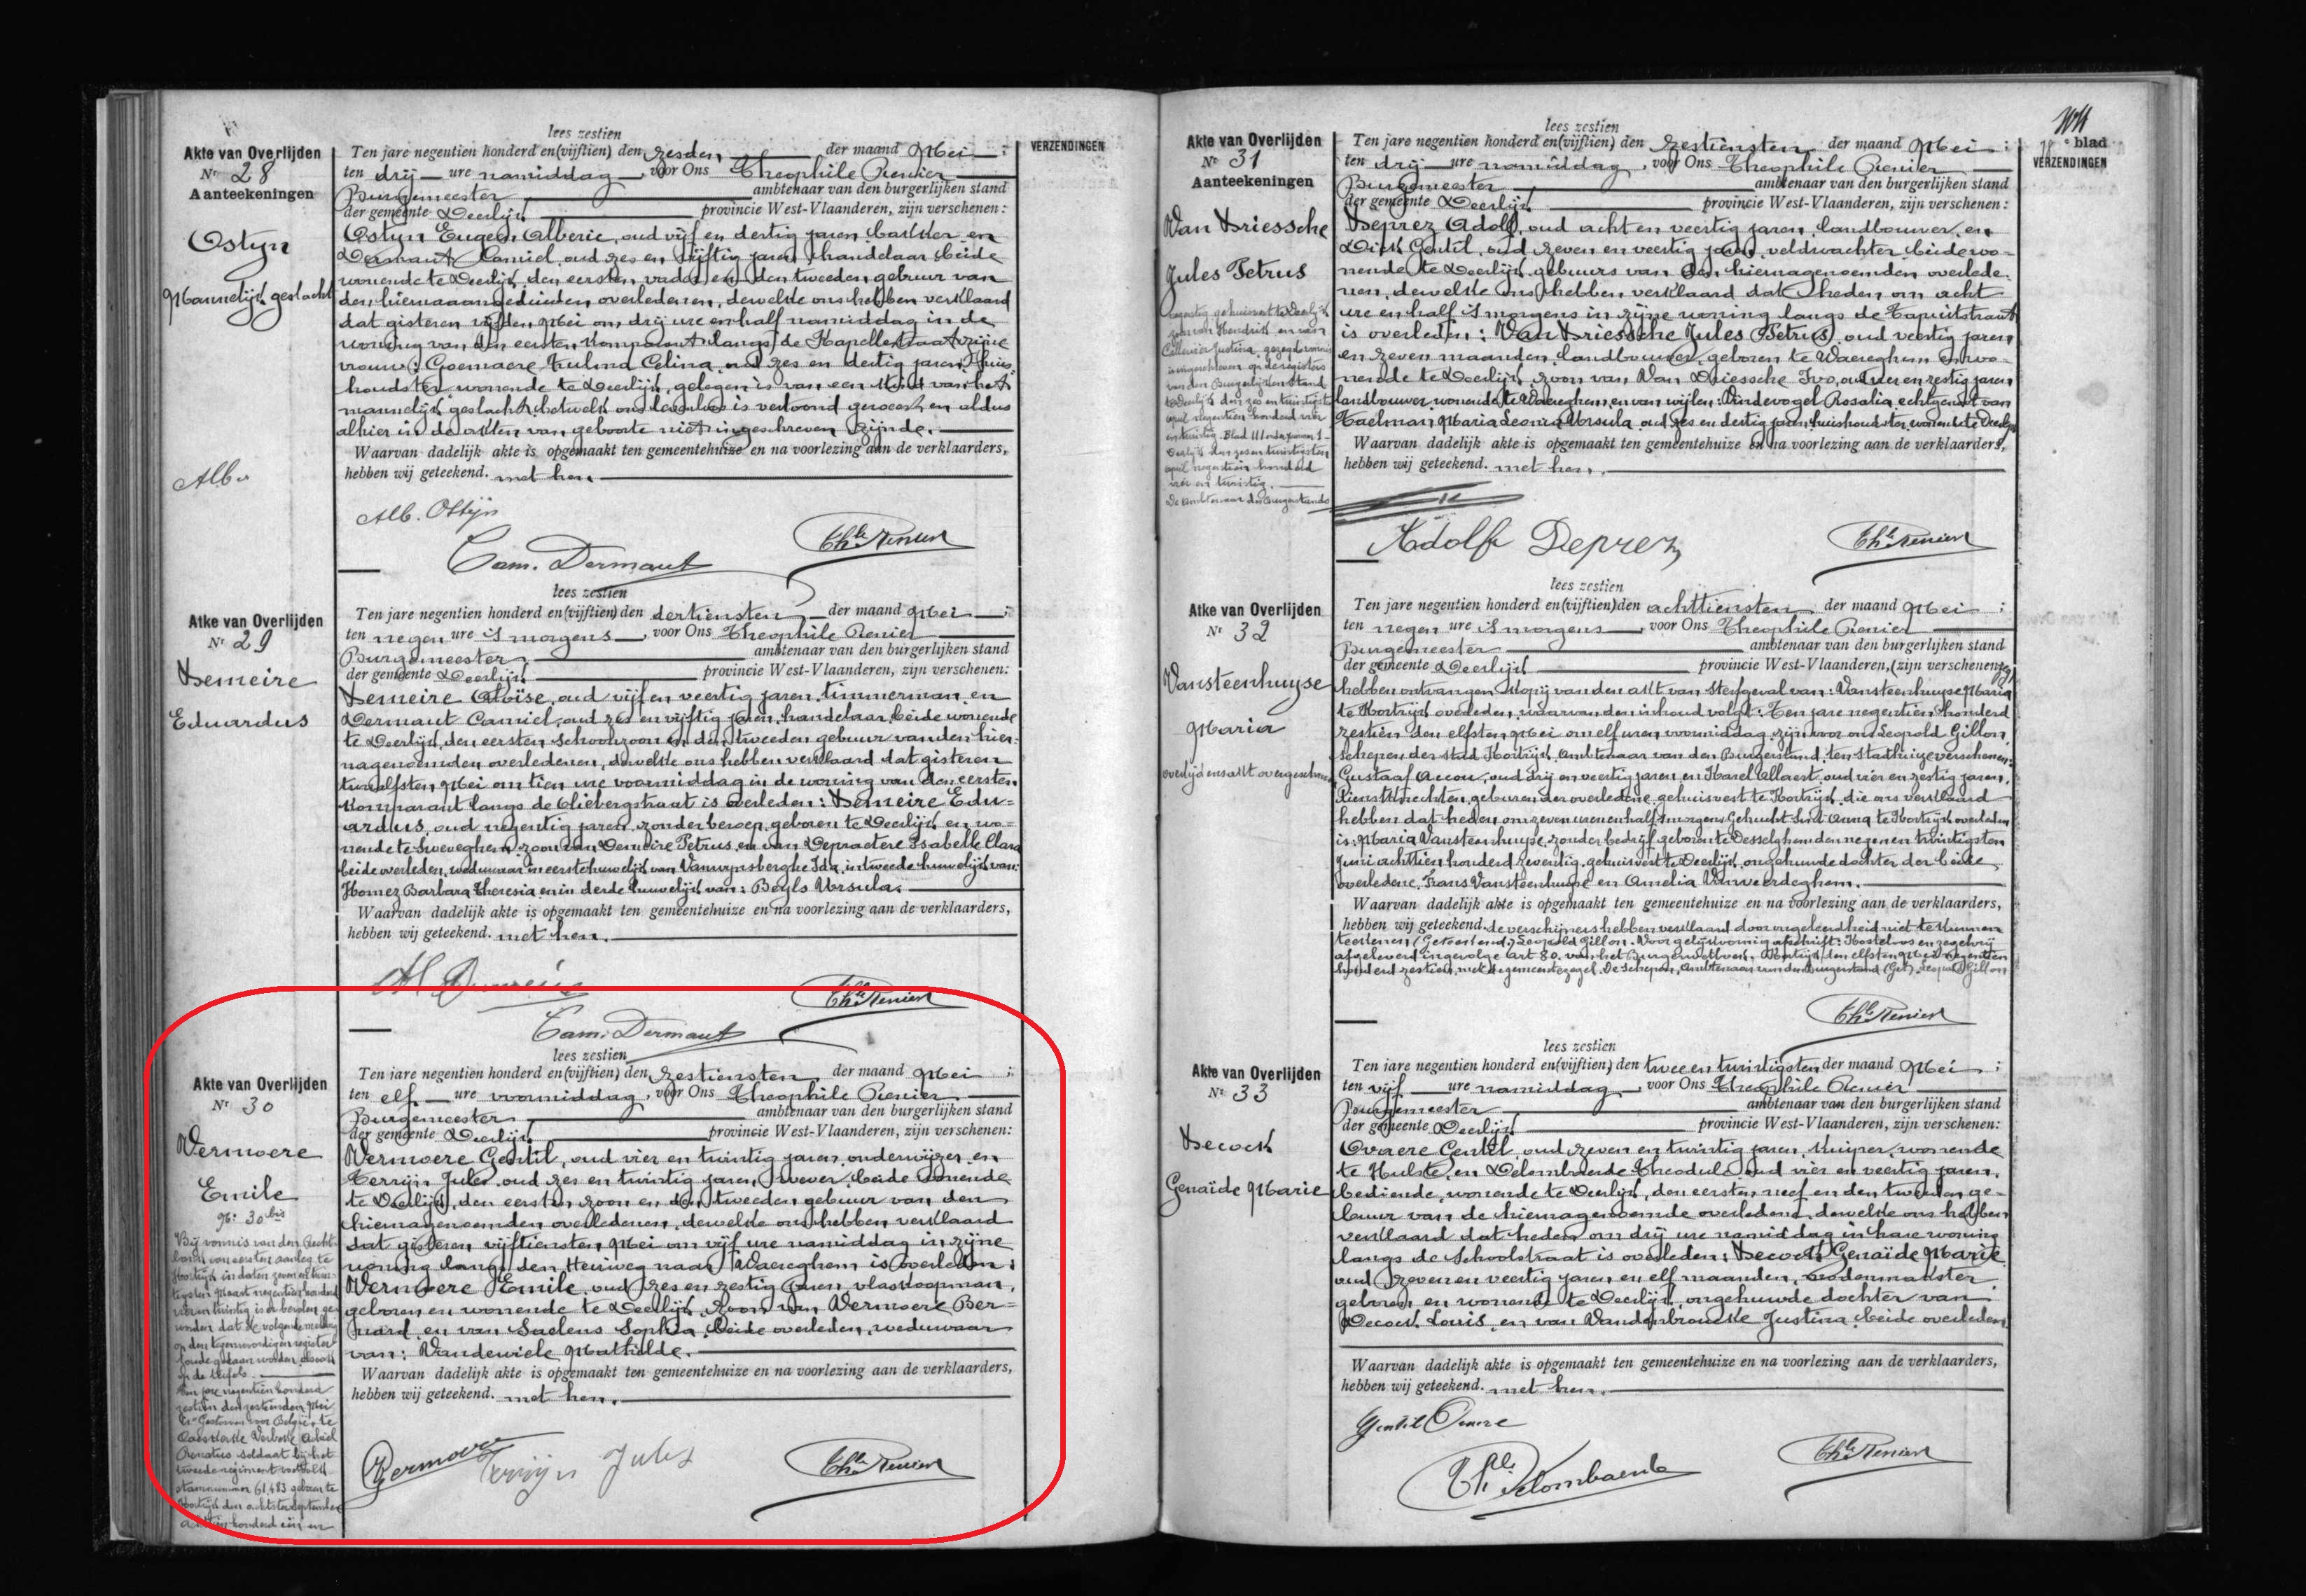 lees zestien
Akte van Overlijden
Nr 28
Aanteekeningen
Ostyn
Mannelijk geslacht
Alb.
Ten jare negentien honderd en (vijftien) den zesden der maand Mei ;
ten drij ure namiddag, voor Ons Theophile Renier
Burgemeester ambtenaar van den burgerlijken stand
der gemeente Deerlijk provincie West-Vlaanderen, zijn verschenen:
Ostyn Eugeen Alberic, oud vijf en dertig jaren, bakker en
Dermaut Camiel, oud zes en vijftig jaren, handelaar beide
wonende te Deerlijk, den eersten vader en den tweeden gebuur van
den hiernaaangeduiden overledenen, dewelke ons hebben verklaard
dat gisteren vijfden Mei om drij ure en half namiddag in de
woning van den eersten komparant langs de Kapellestraat zijne
vrouw: Goemaere Zulma Celina, oud zes en dertig jaren, huis-
houdster, wonende te Deerlijk, gelegen is van een kind van het
mannelijk geslacht, hetwelk ons levenloos is vertoond geweest en aldus
alhier in de akten van geboorte niet ingeschreven zijnde.
Waarvan dadelijk akte is opgemaakt ten gemeentehuize en na voorlezing aan de verklaarders,
hebben wij geteekend. met hen.
Alb. Ostijn
Cam. Dermaut
Thle Renier
VERZENDINGEN
lees zestien
Akte van Overlijden
Nr 29
Demeire
Eduardus
Ten jare negentien honderd en (vijftien) den dertiensten der maand Mei ;
ten negen ure 's morgens, voor Ons Theophile Renier
Burgemeester ambtenaar van den burgerlijken stand
der gemeente Deerlijk provincie West-Vlaanderen, zijn verschenen:
Demeire Aloïse, oud vijf en veertig jaren, timmerman en
Dermaut Camiel, oud zes en vijftig jaren, handelaar, beide wonende
te Deerlijk, den eersten schoonzoon en den tweeden gebuur van den hier-
nagenoemden overledenen, dewelke ons hebben verklaard dat gisteren
twaalfsten Mei om tien ure voormiddag in de woning van den eersten
komparant langs de Oliebergstraat is overleden: Demeire Edu-
ardus, oud negentig jaren, zonder beroep, geboren te Deerlijk en wo-
nende te Sweveghem, zoon van Demeire Petrus en van Depraetere Isabelle Clara
beide overleden, weduwaar in eerste huwelijk van Vanwynsberghe Ida, in tweede huwelijk van:
Homez Barbara Theresia en in derde huwelijk van: Beyls Ursula.
Waarvan dadelijk akte is opgemaakt ten gemeentehuize en na voorlezing aan de verklaarders,
hebben wij geteekend. met hen.
Al Demeire
Thle Renier
Cam. Dermaut
lees zestien
Akte van Overlijden
Nr 30
Vermoere
Emile
Nr 30 bis
Bij vonnis van den Recht-
bank van eersten aanleg te
Kortrijk in daten zeven en twin-
tigsten Maart negentien honderd
vier en twintig is er bevolen ge-
worden dat de volgende melding
op den tegenwoordigen register
zoude gedaan worden, alsook
op de tafels.
Ten jare negentien honderd
zestien den zestienden Mei
is "Gestorven voor België" te
Verbeke Achiel
Renatus soldaat bij het
tweede regiment
stamnummer 61,483 geboren te
Kortrijk den achtsten September
achttien honderd een en
Ten jare negentien honderd en (vijftien) den zestiensten der maand Mei ;
ten elf ure voormiddag, voor Ons Theophile Renier
Burgemeester ambtenaar van den burgerlijken stand
der gemeente Deerlijk provincie West-Vlaanderen, zijn verschenen:
Vermoere Gentil, oud vier en twintig jaren onderwijzer en
Terryn Jules, oud zes en twintig jaren, wever, beide wonende
te Deerlijk, den eersten zoon en den tweeden gebuur van den
hiernagenoemden overledenen, dewelke ons hebben verklaard
dat gisteren vijftiensten Mei om vijf ure namiddag in zijne
woning langs den Heirweg naar Waereghem is overleden:
Vermoere Emile, oud zes en zestig jaren, vlaskoopman,
geboren en wonende te Deerlijk, zoon van Vermoere Ber-
nard en van Saelens Sophia, beide overleden, weduwaar
van: Vandewiele Mathilde.
Waarvan dadelijk akte is opgemaakt ten gemeentehuize en na voorlezing aan de verklaarders,
hebben wij geteekend. met hen.
GVermoere
Terrijn Jules
Thle Renier
lees zestien
18e blad
Akte van Overlijden
Nr 31
Aanteekeningen
VERZENDINGEN
Van Driessche
Jules Petrus
zoon van Hendrik en van
Justina, gezegd vonnis
ingeschreven op de registers
van den Burgerlijken Stand
te Deerlijk den zes en twintigsten
april negentien honderd vier
en twintig.
Deerlijk den zes en twintigsten
april negentien honderd
vier en twintig.
Ten jare negentien honderd en (vijftien) den zestiensten der maand Mei ;
ten drij ure namiddag, voor Ons Theophile Renier
Burgemeester ambtenaar van den burgerlijken stand
der gemeente Deerlijk provincie West-Vlaanderen, zijn verschenen:
Deprez Adolf, oud acht en veertig jaren, landbouwer, en
Dick Gentil, oud zeven en veertig jaren, veldwachter beide wo-
nende te Deerlijk, gebuurs van den hiernagenoemden overlede-
nen, dewelke ons hebben verklaard dat heden om acht
ure en half 's morgens in zijne woning langs de Tapuitstraat
is overleden: Van Driessche Jules Petrus, oud veertig jaren
en zeven maanden, landbouwer, geboren te Waereghem en wo-
nende te Deerlijk, zoon van Van Driessche Ivo, oud vier en zestig jaren
landbouwer, wonende te Waereghem, en van wijlen: Vindevogel Rosalia, echtgenoot van
Taelman Maria Leonia Ursula, oud zes en dertig jaren, huishoudster, wonende te Deerlijk
Waarvan dadelijk akte is opgemaakt ten gemeentehuize en na voorlezing aan de verklaarders,
hebben wij geteekend. met hen.
Adolf Deprez
Thle Renier
lees zestien
Akte van Overlijden
Nr 32
Vansteenhuyse
Maria
overlijdensakt overgeschreven
Ten jare negentien honderd en (vijftien) den achttiensten der maand Mei ;
ten negen ure 's morgens, voor Ons Theophile Renier
Burgemeester ambtenaar van den burgerlijken stand
der gemeente Deerlijk provincie West-Vlaanderen, (zijn verschenen
hebben ontvangen kopij van den akt van sterfgeval van: Vansteenhuyse Maria
te Kortrijk overleden, waarvan den inhoud volgt: Ten jare negentien honderd
zestien den elfsten Mei om elf uren voormiddag, zijn voor ons Leopold Gillon,
Schepen der stad Kortrijk, Ambtenaar van den Burgerstand, ten Stadhuize verschenen:
Gustaaf Accou, oud drij en veertig jaren en Karel Allaert, oud vier en zestig jaren,
Dienstknechten, geburen der overledene, gehuisvest te Kortrijk, die ons verklaard
hebben dat heden om zeven uren en half 's morgens Gehucht Sint Anna te Kortrijk overleden
is: Maria Vansteenhuyse, zonder bedrijf, geboren te Desselghem den negen en twintigsten
Juni achttien honderd zeventig, gehuisvest te Deerlijk, ongehuwde dochter der beide
overledene, Frans Vansteenhuyse en Amelia Vanweerdeghem.
Waarvan dadelijk akte is opgemaakt ten gemeentehuize en na voorlezing aan de verklaarders,
hebben wij geteekend. de verschijners hebben verklaard door ongeleerdheid niet te kunnen
teekenen, (Geteekend.) Leopold Gillon. Voor gelijkvormig afschrift: Kosteloos en zegelvrij
afgeleverd ingevolge art 80. van het Burgerwetboek. Kortrijk, den elfsten Mei negentien
honderd zestien, met gemeentezegel. De Schepen, Ambtenaar van den Burgerstand (Get.) Leopold Gillon
Thle Renier
lees zestien
Akte van Overlijden
Nr 33
Decock
Genaïde Marie
Ten jare negentien honderd en (vijftien) den twee en twintigsten der maand Mei ;
ten vijf ure namiddag, voor Ons Theophile Renier
Burgemeester ambtenaar van den burgerlijken stand
der gemeente Deerlijk provincie West-Vlaanderen, zijn verschenen:
Ovaere Gentil, oud zeven en twintig jaren, kuiper, wonende
te Hulste, en Delombaerde Theodule, oud vier en veertig jaren,
bediende, wonende te Deerlijk, den eersten neef en den tweeden ge-
buur van de hiernagenoemde overledene, dewelke ons hebben
verklaard dat heden om drij ure namiddag in hare woning
langs de Schoolstraat is overleden: Decock Genaïde Marie
oud zeven en veertig jaren en elf maanden, modemaakster,
geboren en wonende te Deerlijk, ongehuwde dochter van
Decock Louis en van Vandenbroucke Justina, beide overleden
Waarvan dadelijk akte is opgemaakt ten gemeentehuize en na voorlezing aan de verklaarders,
hebben wij geteekend. met hen.
Gentil Ovaere
Thle Delombaerde
Thle Renier